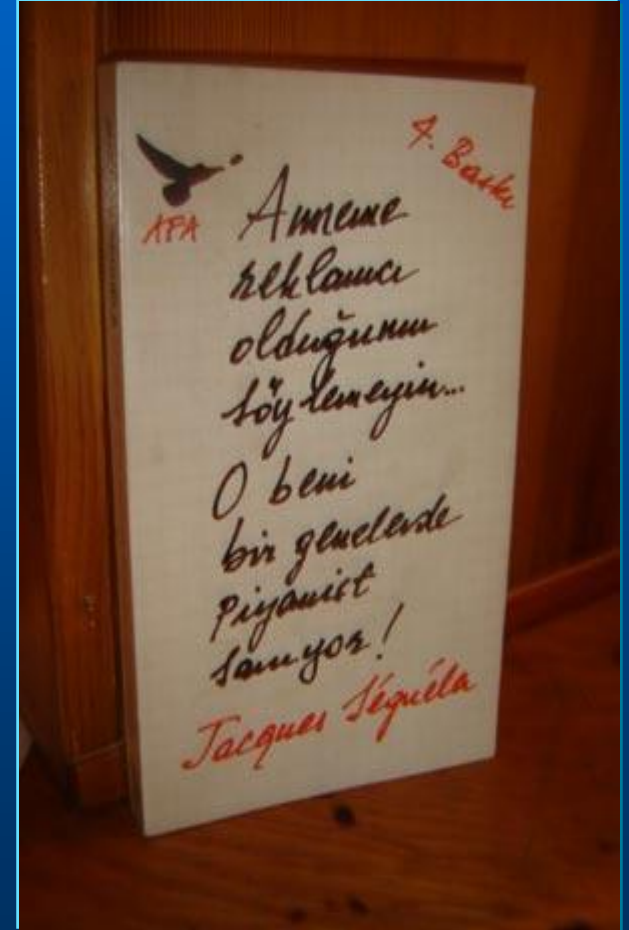 4. Baskı
AFA
Anneme
reklamcı
olduğumu
söylemeyin...
O beni
bir genelevde
piyanist
sanıyor!
Jacques Séguéla